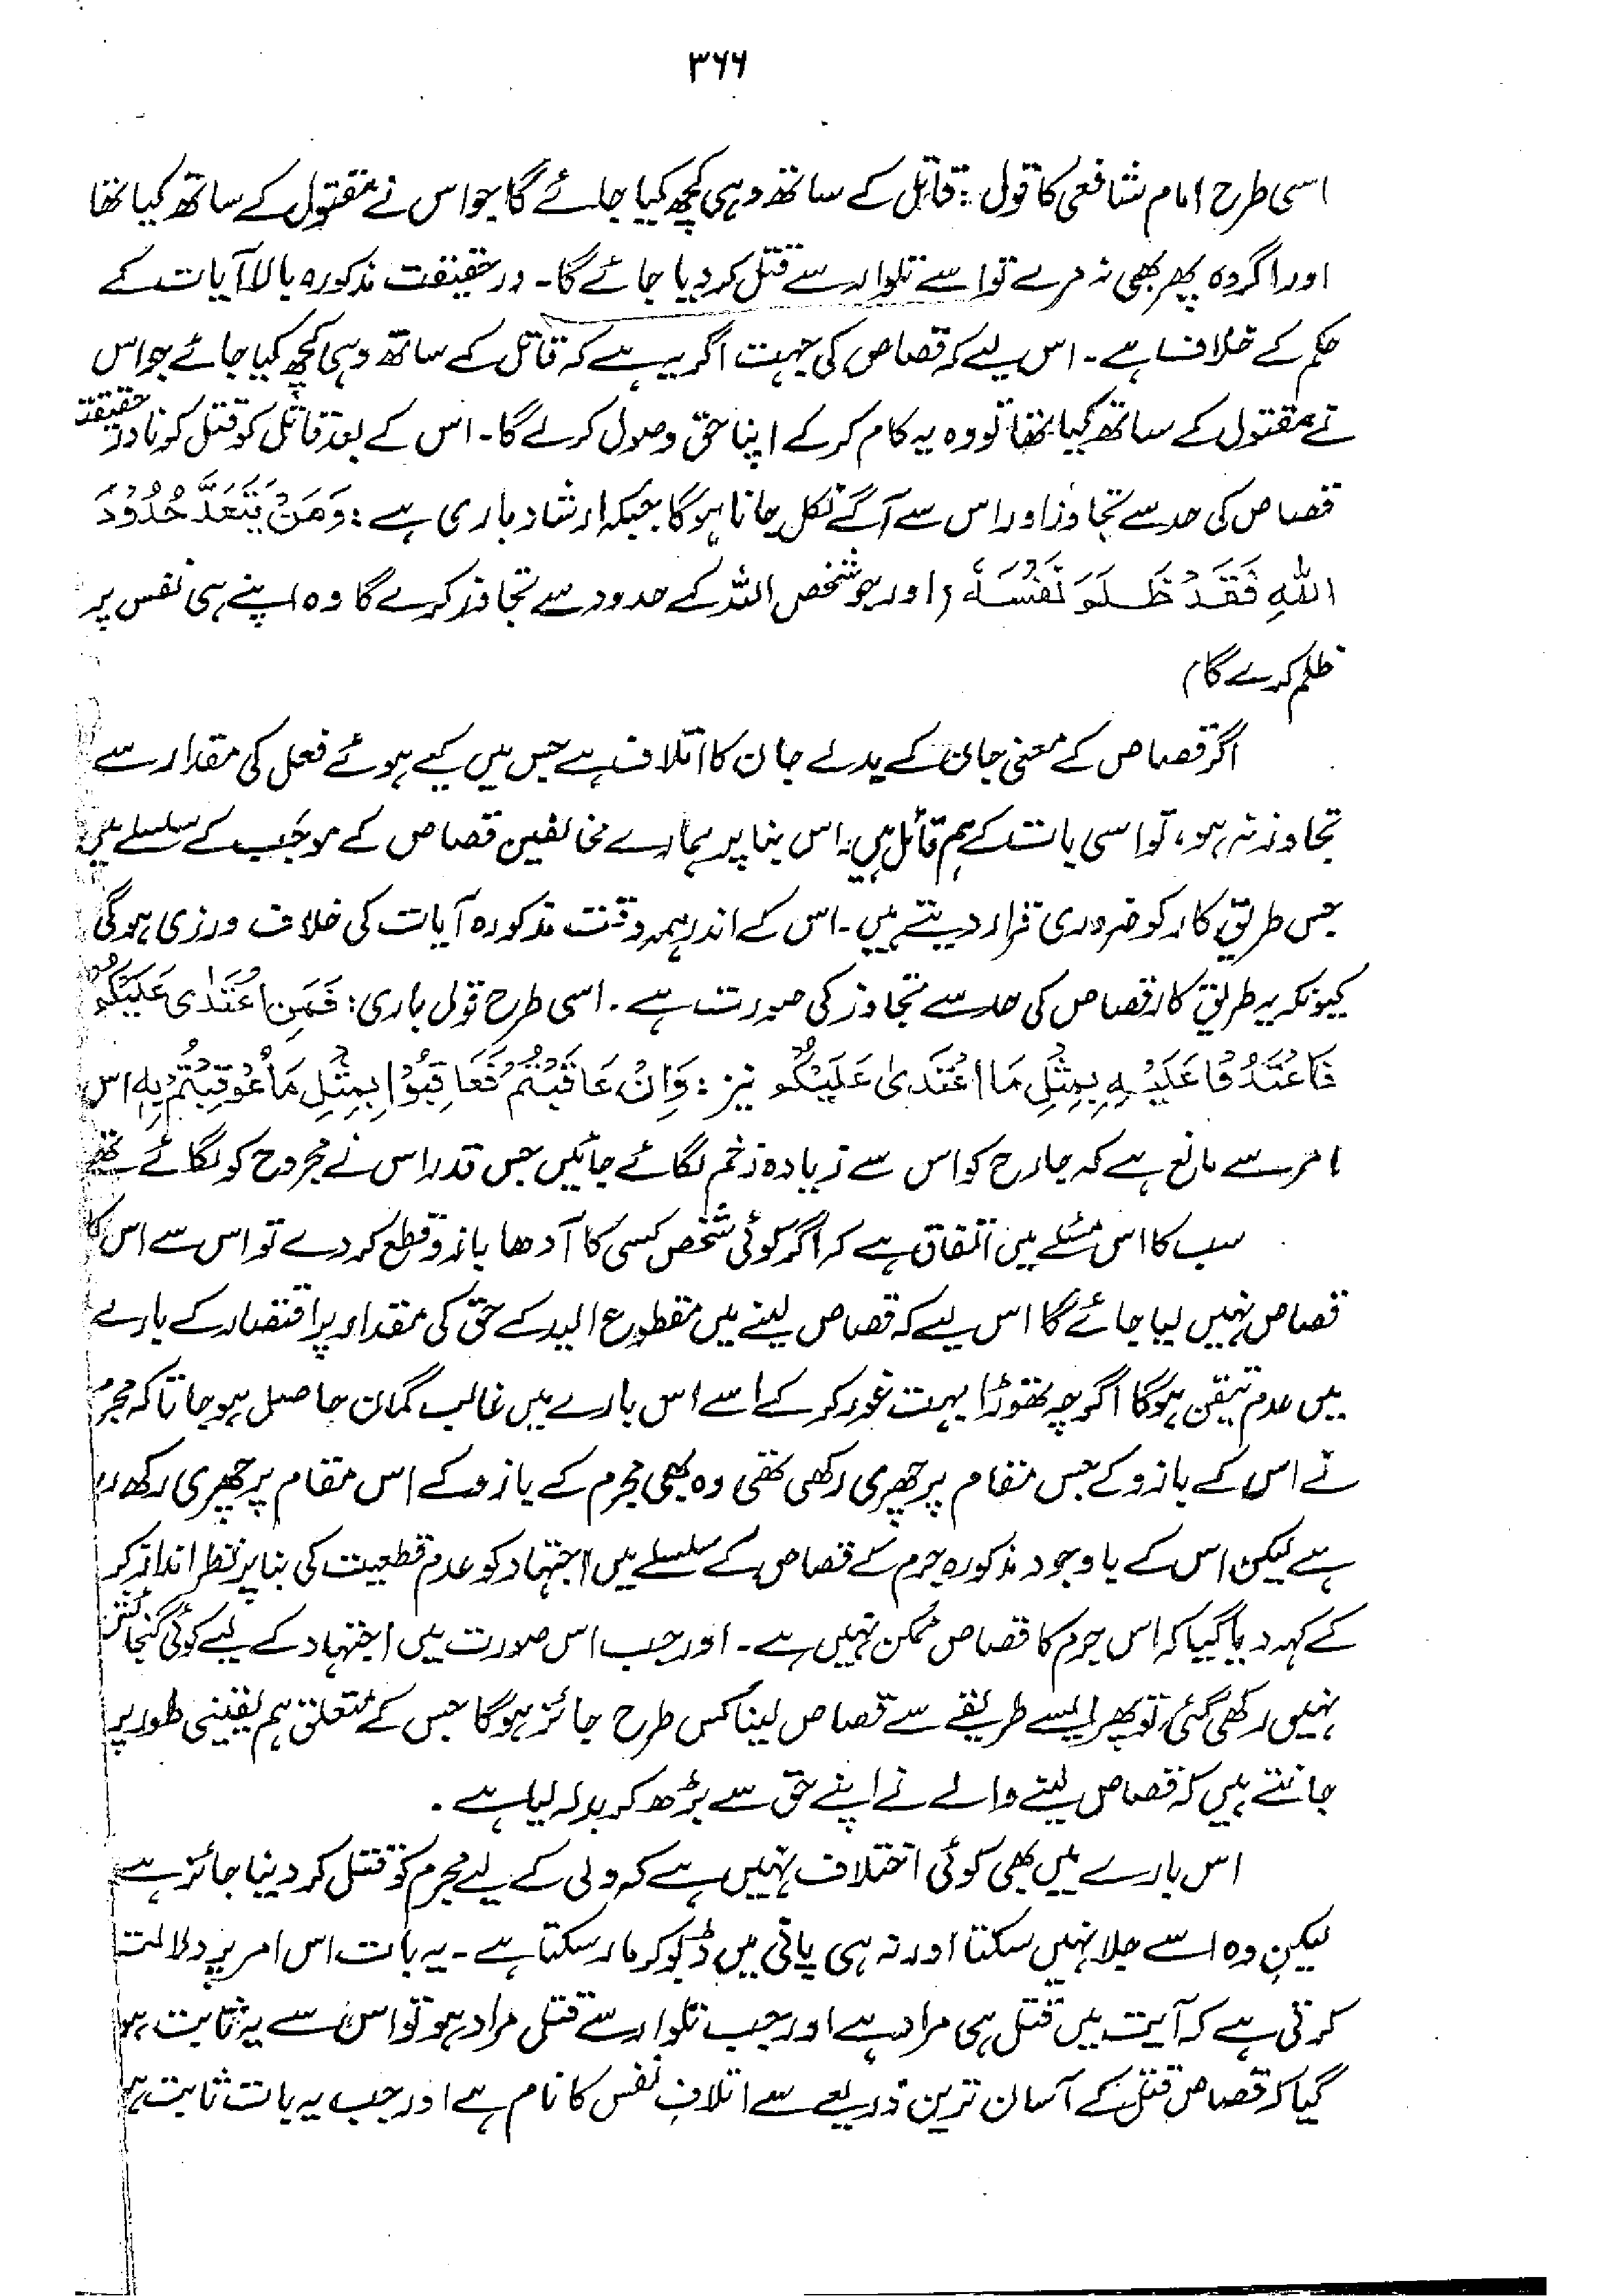 ۳۶۶
اسی طرح امام شافعی کا قول: قاتل کے ساتھ وہی کچھ کیا جائے گا جو اس نے مقتول کے ساتھ کیا تھا
اور اگر وہ پھر بھی نہ مرے تو اسے تلوار سے قتل کر دیا جائے گا۔ در حقیقت مذکورہ بالا آیات کے
حکم کے خلاف ہے۔ اس لیے کہ قصاص کی جہت اگر یہ ہے کہ قاتل کے ساتھ وہی کچھ کیا جائے جو اس
نے مقتول کے ساتھ کیا تھا تو وہ یہ کام کر کے اپنا حق وصول کر لے گا۔ اس کے بعد قاتل کو قتل کرنا در حقیقت
قصاص کی حد سے تجاوز اور اس سے آگے نکل جانا ہوگا جبکہ ارشاد باری ہے: وَمَنْ يَّتَعَدَّ حُدُوْدَ
اللّٰهِ فَقَدْ ظَلَمَ نَفْسَهٗ (اور جو شخص اللہ کے حدود سے تجاوز کرے گا وہ اپنے ہی نفس پر
ظلم کرے گا)
اگر قصاص کے معنی جان کے بدلے جان کا اتلاف ہے جس میں کیے ہوئے فعل کی مقدار سے
تجاوز نہ ہو، تو اسی بات کے ہم قائل ہیں۔ اس بنا پر ہمارے مخالفین قصاص کے موجب کے سلسلے میں
جس طریق کار کو ضروری قرار دیتے ہیں۔ اس کے اندر ہمہ وقت مذکورہ آیات کی خلاف ورزی ہوگی
کیونکہ یہ طریق کار قصاص کی حد سے تجاوز کی صورت ہے۔ اسی طرح قول باری: فَمَنِ اعْتَدٰى عَلَيْكُمْ
فَاعْتَدُوْا عَلَيْهِ بِمِثْلِ مَا اعْتَدٰى عَلَيْكُمْ نیز: وَاِنْ عَاقَبْتُمْ فَعَاقِبُوْا بِمِثْلِ مَا عُوْقِبْتُمْ بِهٖ اس
امر سے مانع ہے کہ جارح کو اس سے زیادہ زخم لگائے جائیں جس قدر اس نے مجروح کو لگائے تھے
سب کا اس مسئلے میں اتفاق ہے کہ اگر کوئی شخص کسی کا آدھا بازو قطع کر دے تو اس سے اس کا
قصاص نہیں لیا جائے گا اس لیے کہ قصاص لینے میں مقطوع الید کے حق کی مقدار پر اقتصار کے بارے
میں عدم تیقن ہوگا اگرچہ تھوڑا بہت غور کر کے اسے اس بارے میں غالب گمان حاصل ہو جاتا کہ مجرم
نے اس کے بازو کے جس مقام پر چھری رکھی تھی وہ بھی مجرم کے بازو کے اس مقام پر چھری رکھ رہا
ہے لیکن اس کے باوجود مذکورہ جرم کے قصاص کے سلسلے میں اجتہاد کو عدم قطعیت کی بنا پر نظر انداز کر
کے کہہ دیا گیا کہ اس جرم کا قصاص ممکن نہیں ہے۔ اور جب اس صورت میں اجتہاد کے لیے کوئی گنجائش
نہیں رکھی گئی، تو پھر ایسے طریقے سے قصاص لینا کس طرح جائز ہوگا جس کے متعلق ہم یقینی طور پر
جانتے ہیں کہ قصاص لینے والے نے اپنے حق سے بڑھ کر بدلہ لیا ہے۔
اس بارے میں بھی کوئی اختلاف نہیں ہے کہ ولی کے لیے مجرم کو قتل کر دینا جائز ہے
لیکن وہ اسے جلا نہیں سکتا اور نہ ہی پانی میں ڈبو کر مار سکتا ہے۔ یہ بات اس امر پر دلالت
کرتی ہے کہ آیت میں قتل ہی مراد ہے اور جب تلوار سے قتل مراد ہو تو اس سے یہ ثابت ہو
گیا کہ قصاص قتل کے آسان ترین ذریعے سے اتلافِ نفس کا نام ہے اور جب یہ بات ثابت ہو